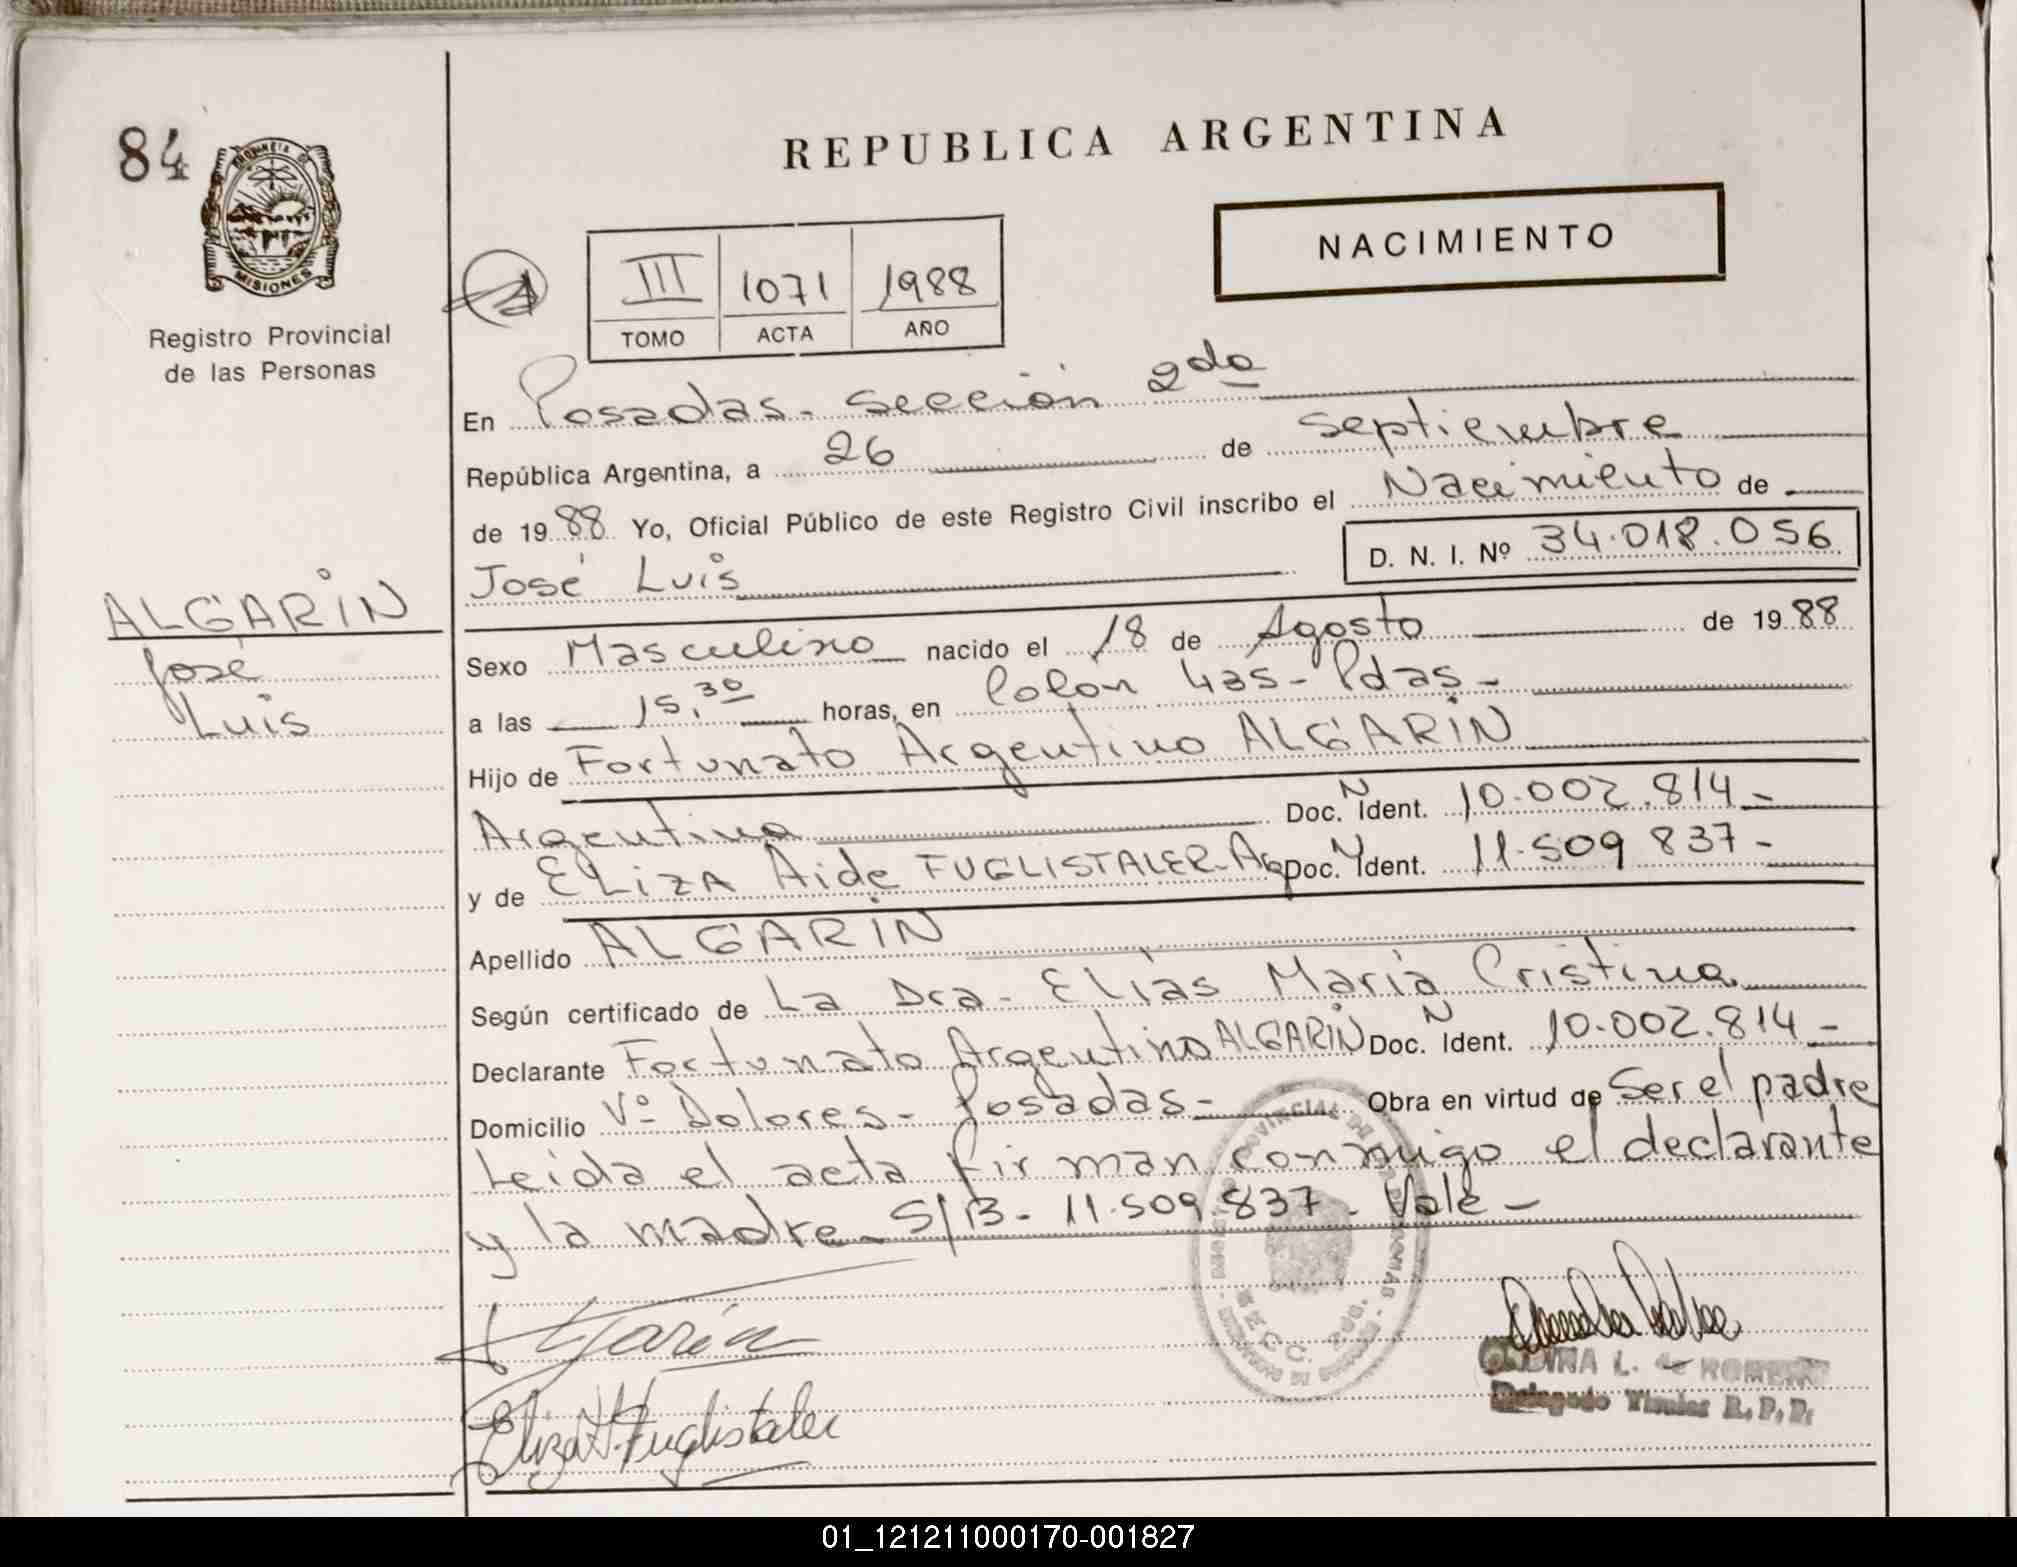 84
PROVINCIA DE
MISIONES
Registro Provincial
de las Personas
ALGARIN
José
Luis
REPUBLICA ARGENTINA
NACIMIENTO
III 1071 1988
TOMO ACTA AÑO
En Posadas- Sección 2da
República Argentina, a 26 de septiembre
de 1988 Yo, Oficial Público de este Registro Civil inscribo el Nacimiento de
José Luis D. N. I. Nº 34.018.056
Sexo Masculino nacido el 18 de Agosto de 1988
a las 15,30 horas, en Colón 435- Pdas-
Hijo de Fortunato Argentino ALGARIN
Argentino Doc. N Ident. 10.002.814-
y de ELIZA Aide FUGLISTALER-Ag Doc. Ident. 11.509 837-
Apellido ALGARIN
Según certificado de La Dra- Elias María Cristina
Declarante Fortunato Argentino ALGARIN Doc. N Ident. 10.002.814-
Domicilio Vº Dolores- Posadas- Obra en virtud de Ser el padre
Leida el acta firman conmigo el declarante
y la madre- S/B- 11.509.837- Vale-
Eliza A. Fuglistaler
L. de ROMERO
Delegado Titular R.P.P.
01_121211000170-001827